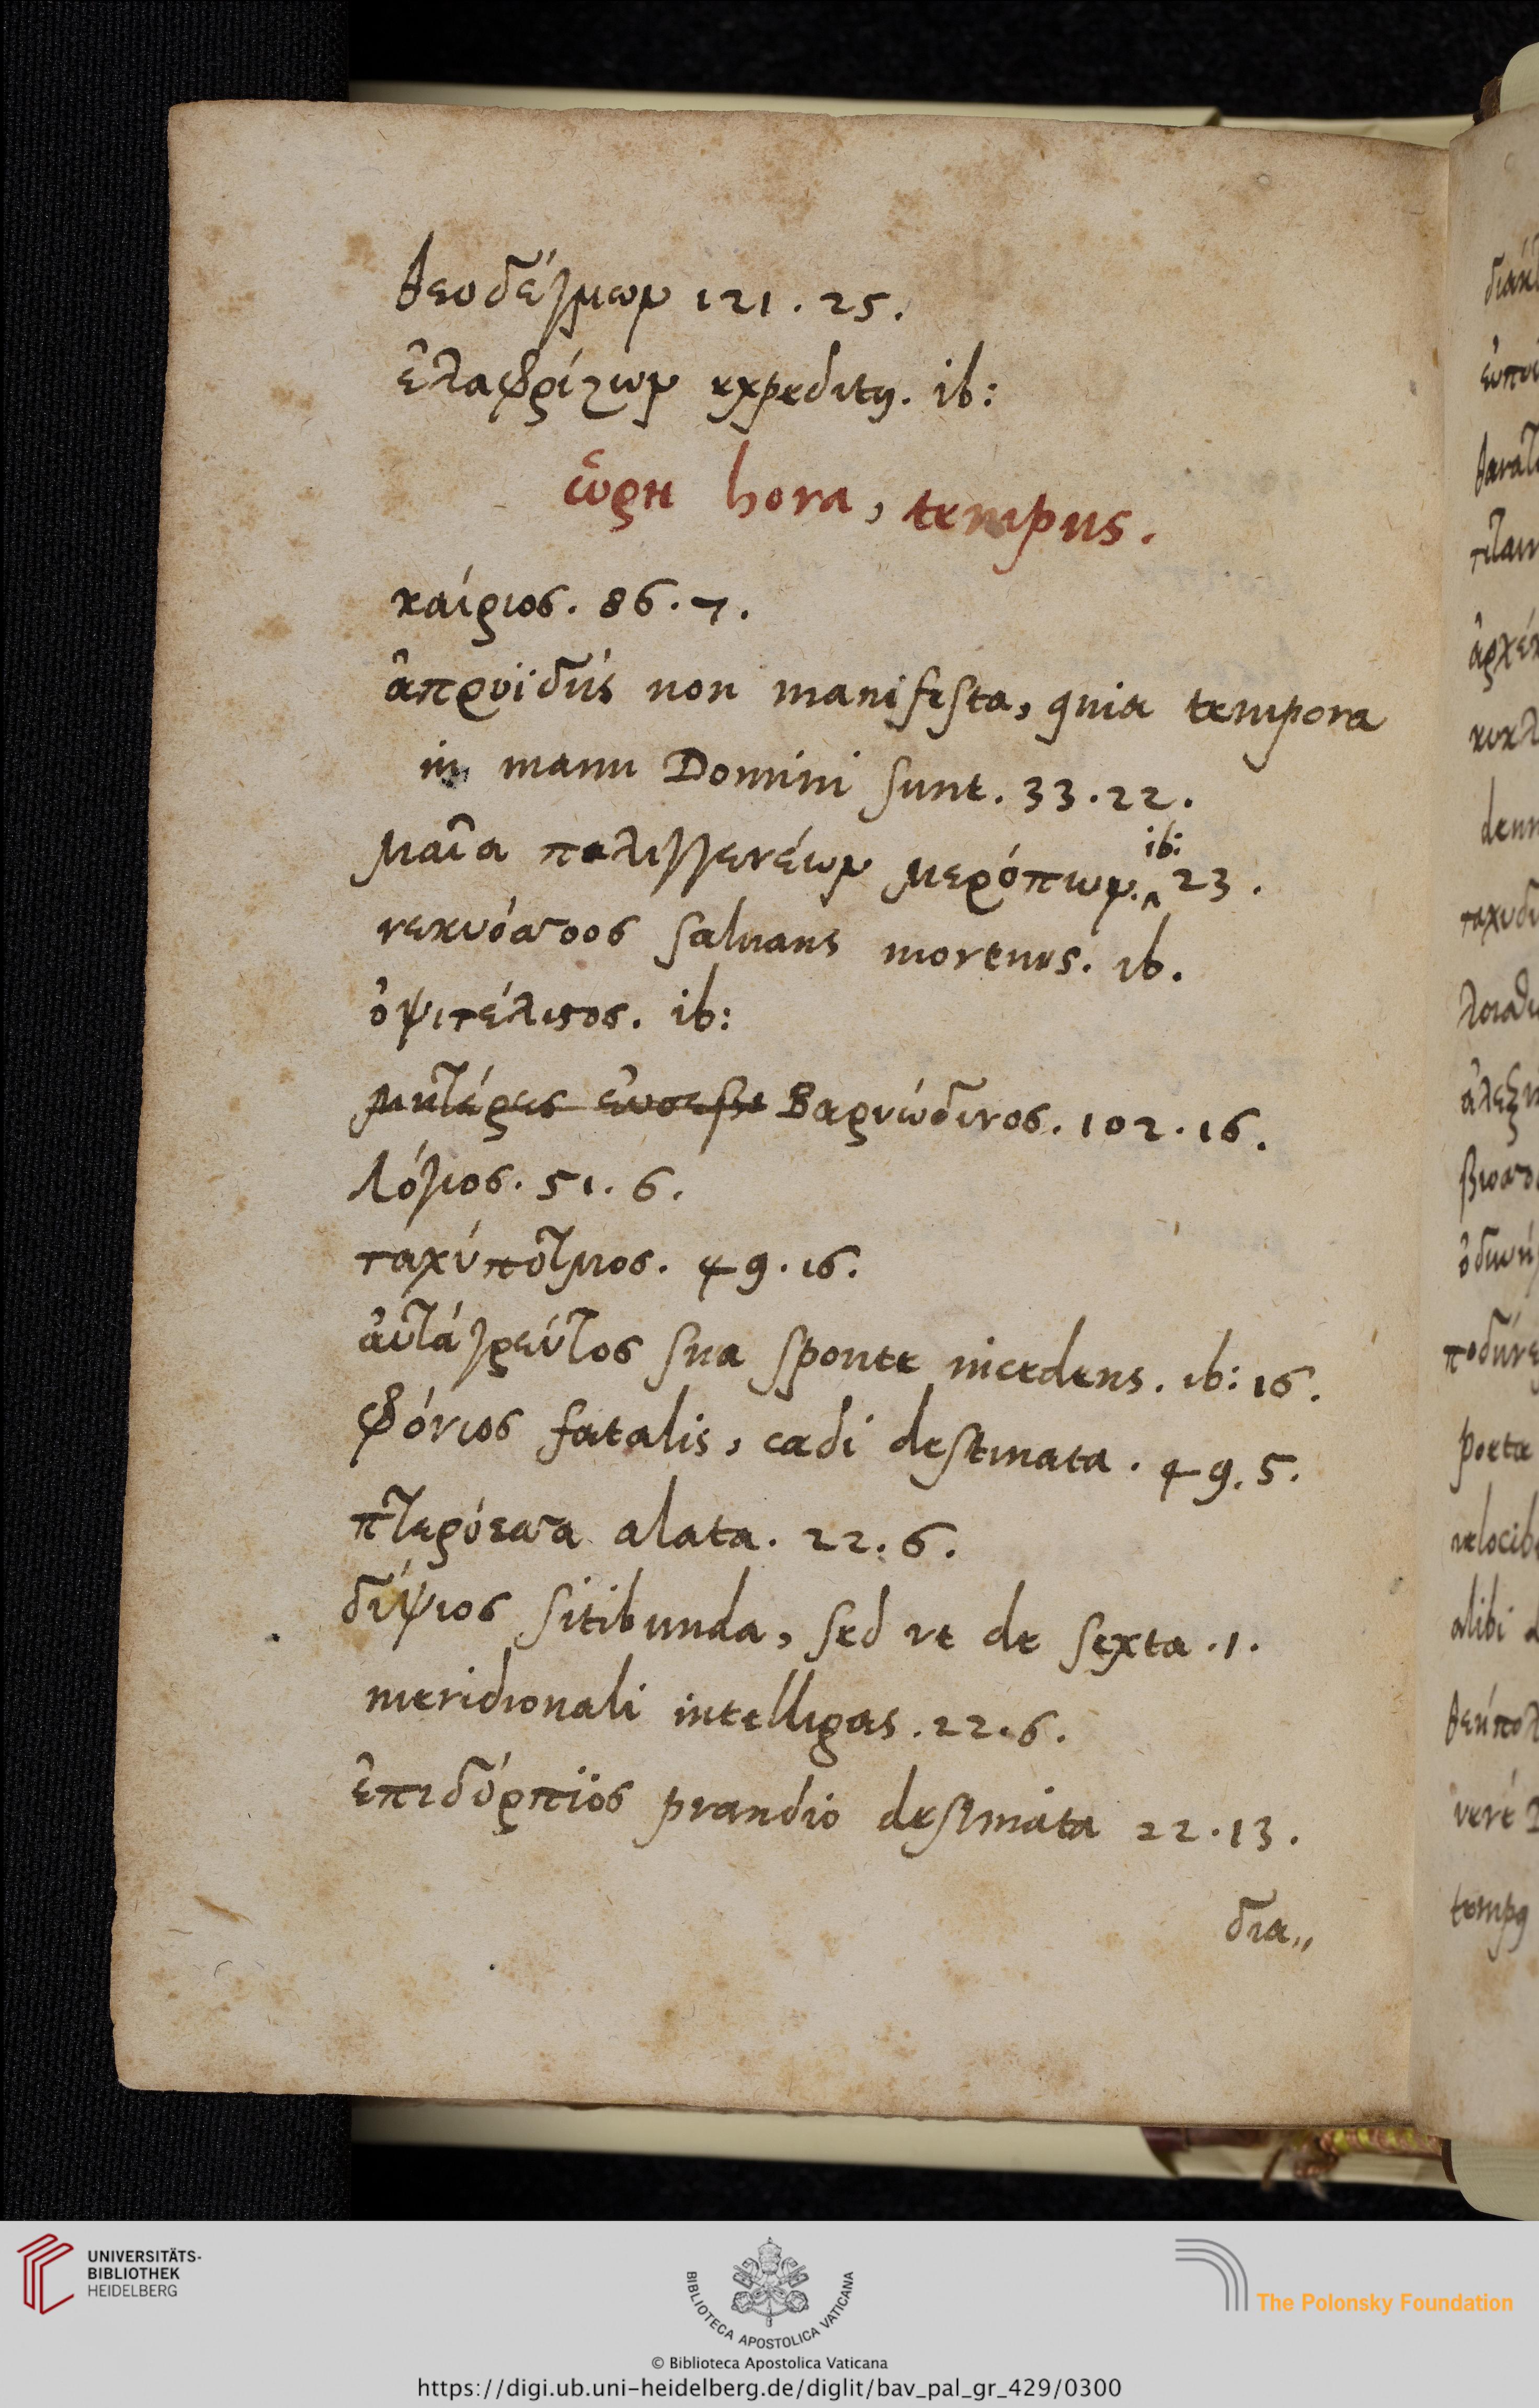 θεοδέγμων 121. 25.
ἐλαφρίζων expeditus. ib:
ὥρη hora, tempus.
καίριος. 86. 7.
ἀπροϊδὴς non manifesta, quia tempora
in manu Domini sunt. 33. 22.
μαῖα παλιγγενέων μερόπων. ib: 23.
νεκυσσόος salvans mortuos. ib.
ὀψιτέλεστος. ib:
μητέρες εὐσεβι Βαρυώδινος. 102. 16.
λόγιος. 51. 6.
ταχύποτμος. 49. 16.
αὐτάγρευτος sua sponte incedens. ib: 16.
φόνιος fatalis, cædi destinata. 49. 5.
πτερόεσσα alata. 22. 6.
δίψιος sitibunda, sed ut de sexta .1.
meridionali intelligas. 22. 6.
ἐπιδόρπιος prandio destinata 22. 13.
δια,,
UNIVERSITÄTS-
BIBLIOTHEK
HEIDELBERG
BIBLIOTECA APOSTOLICA VATICANA
The Polonsky Foundation
© Biblioteca Apostolica Vaticana
https://digi.ub.uni-heidelberg.de/diglit/bav_pal_gr_429/0300